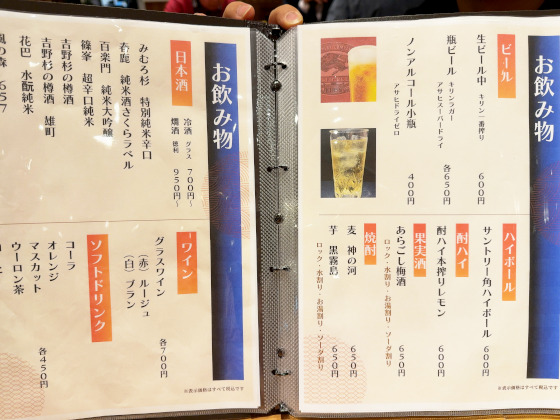 お飲み物
ビール
生ビール中 キリン一番搾り 600円
瓶ビール キリンラガー アサヒスーパードライ 各650円
ノンアルコール小瓶 アサヒドライゼロ 400円
ハイボール
サントリー角ハイボール 600円
酎ハイ
酎ハイ本搾りレモン 600円
果実酒
あらごし梅酒 650円
ロック・水割り・お湯割り・ソーダ割り
焼酎
麦 神の河 650円
芋 黒霧島 650円
ロック・水割り・お湯割り・ソーダ割り
※表示価格はすべて税込です
お飲み物
日本酒
冷酒 グラス 700円~
燗酒 徳利 950円~
みむろ杉 特別純米辛口
春鹿 純米酒さくらラベル
百楽門 純米大吟醸
篠峯 超辛口純米
吉野杉の樽酒
吉野杉の樽酒 雄町
花巴 水酛純米
風の森 657
ワイン
グラスワイン 各700円
(赤)ルージュ
(白)ブラン
ソフトドリンク
コーラ
オレンジ
マスカット
ウーロン茶
各450円
※表示価格はすべて税込です